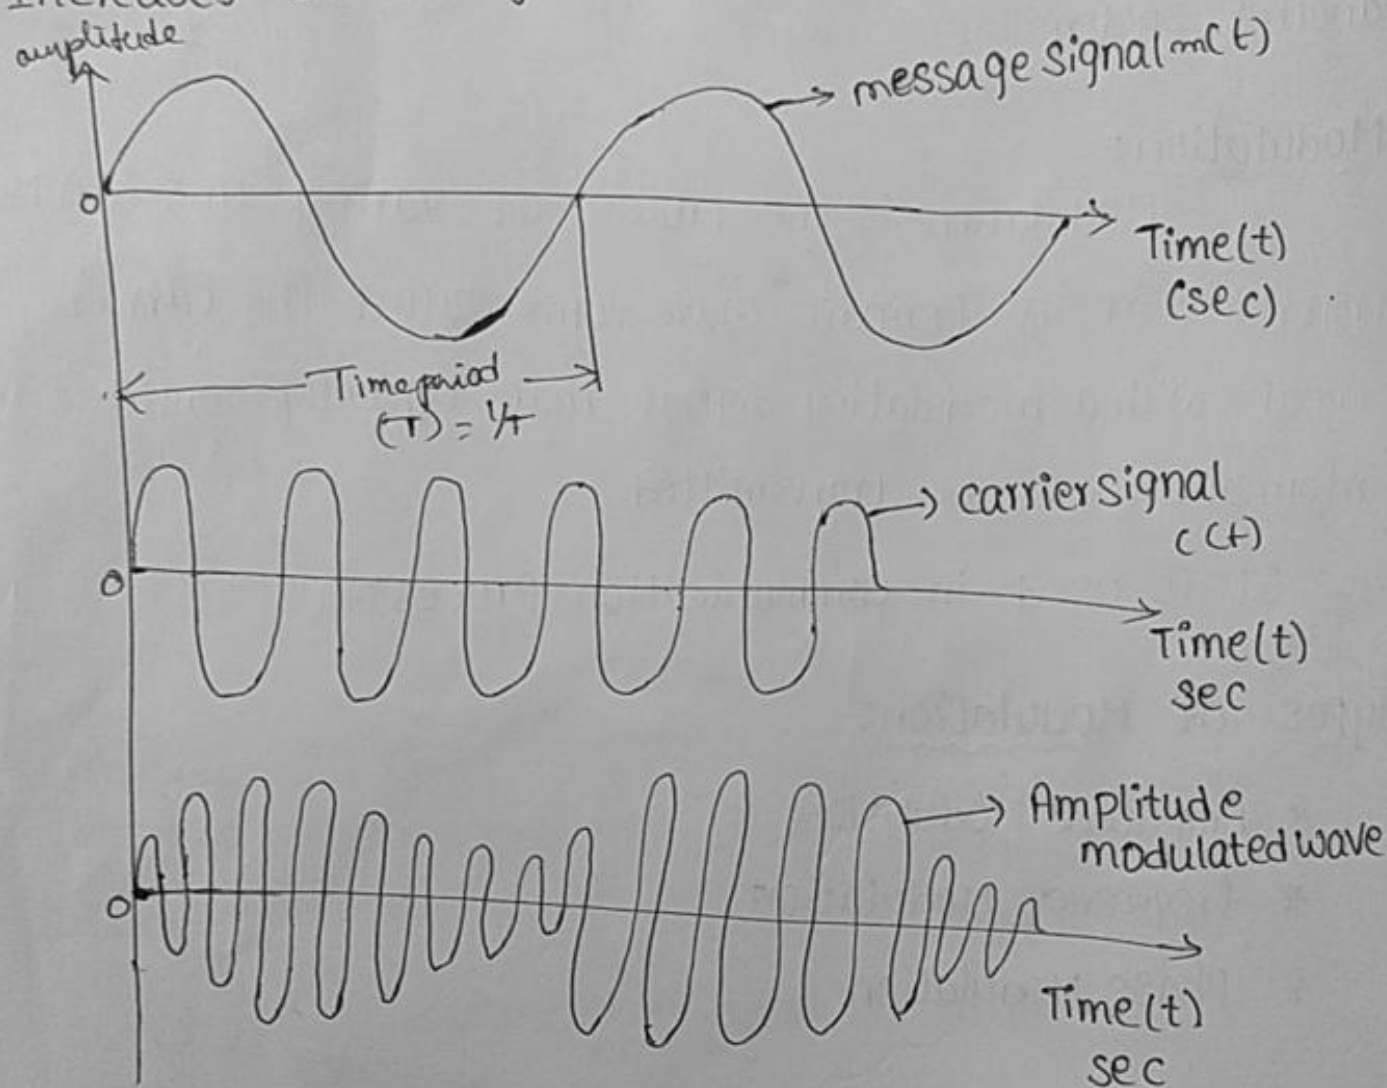 Increases
amplitude
message signal m(t)
0
Time(t)
(sec)
Time period
(T) = 1/T
carrier signal
c(t)
0
Time(t)
sec
Amplitude
modulated wave
0
Time(t)
sec